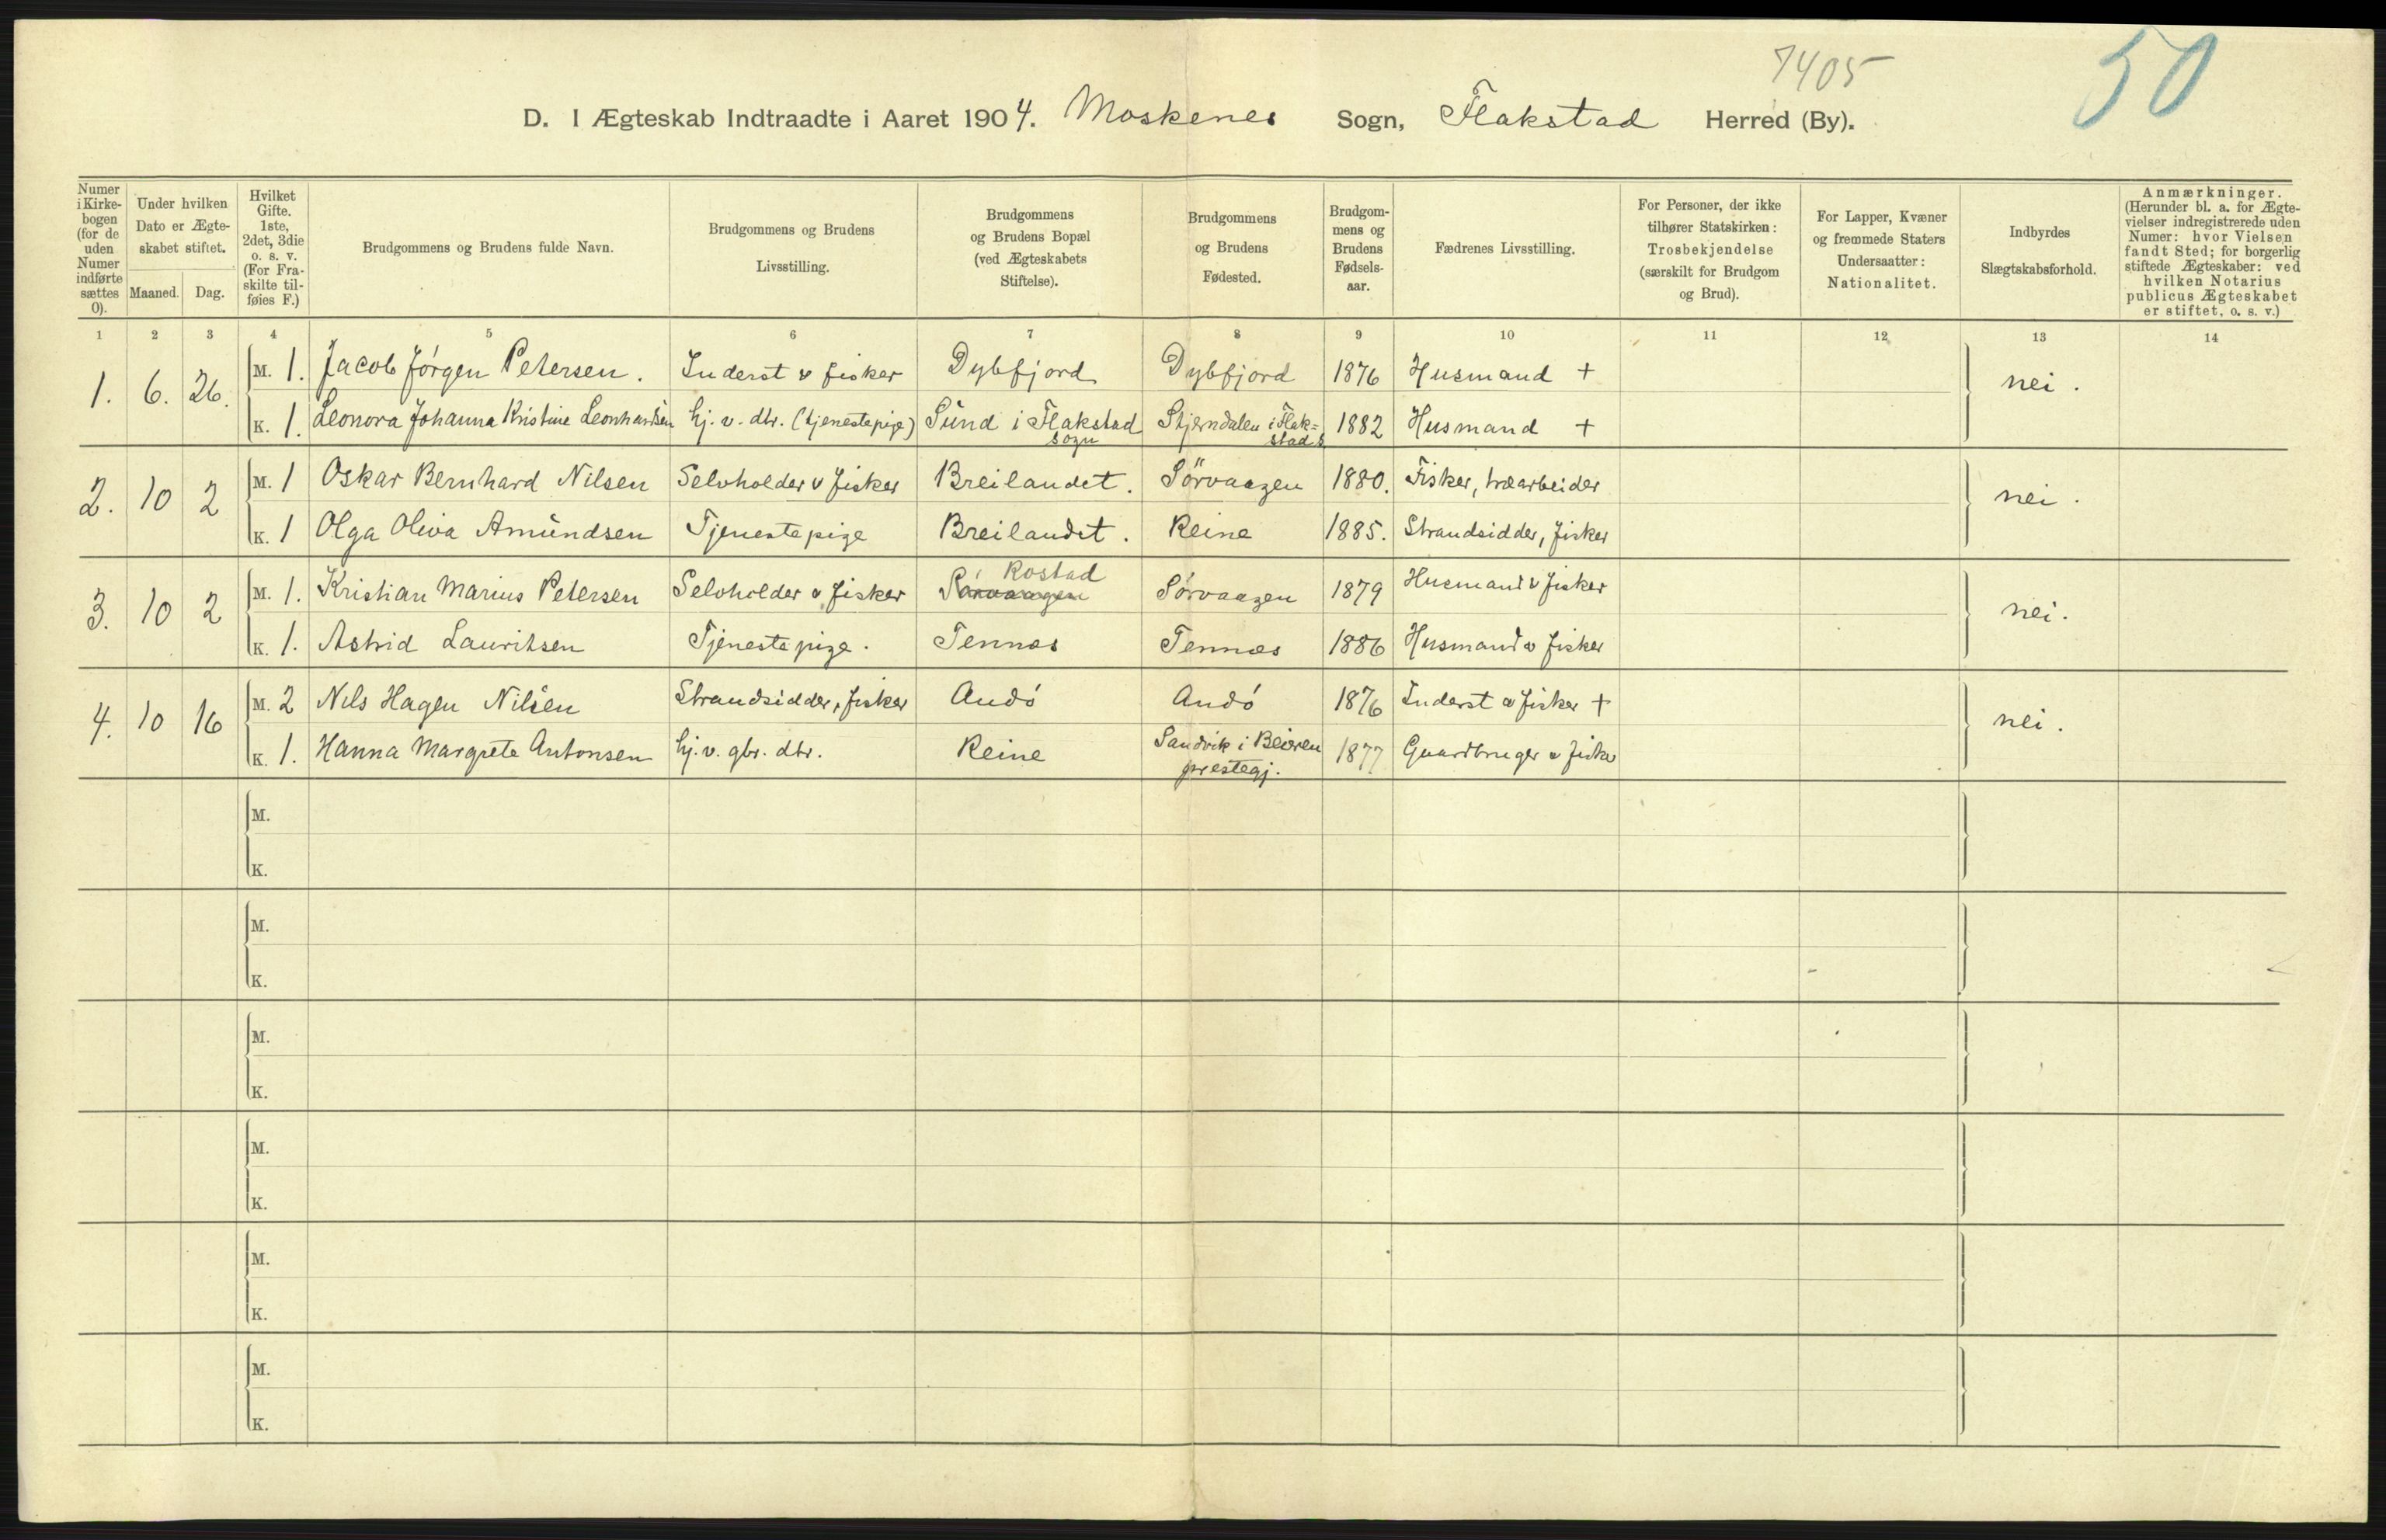 7405
50
D. I Ægteskab Indtraadte i Aaret 1904. Moskenes Sogn, Flakstad Herred (By).
Numer i Kirkebogen (for de uden Numer indførte sættes 0).
Under hvilken Dato er Ægteskabet stiftet.
Maaned. Dag.
Hvilket Gifte. 1ste, 2det, 3die o. s. v. (For Fraskilte tilføies F.)
Brudgommens og Brudens fulde Navn.
Brudgommens og Brudens Livsstilling.
Brudgommens og Brudens Bopæl (ved Ægteskabets Stiftelse).
Brudgommens og Brudens Fødested.
Brudgommens og Brudens Fødselsaar.
Fædrenes Livsstilling.
For Personer, der ikke tilhører Statskirken: Trosbekjendelse (særskilt for Brudgom og Brud).
For Lapper, Kvæner og fremmede Staters Undersaatter: Nationalitet.
Indbyrdes Slægtskabsforhold.
Anmærkninger. (Herunder bl. a. for Ægtevielser indregistrerede uden Numer: hvor Vielsen fandt Sted; for borgerlig stiftede Ægteskaber: ved hvilken Notarius publicus Ægteskabet er stiftet, o. s. v.)
1 2 3 4 5 6 7 8 9 10 11 12 13 14
1. 6. 26. M. 1. Jacob Jørgen Petersen. Inderst & fisker Dybfjord Dybfjord 1876 Husmand + nei.
K. 1. Leonora Johanna Kristine Leonhardsen hj. v. dtr. (tjenestepige) Sund i Flakstad sogn Stjerndalen i Flakstad s 1882 Husmand +
2. 10 2 M. 1 Oskar Bernhard Nilsen Selvholder & fisker Breilandet. Sørvaagen 1880. Fisker, træarbeider nei.
K. 1 Olga Oliva Amundsen Tjenestepige Breilandet. Reine 1885. Strandsidder, fisker
3. 10 2 M. 1. Kristian Marius Petersen Selvholder & fisker Sørvaagen Rostad Sørvaagen 1879 Husmand & fisker nei.
K. 1. Astrid Lauritsen Tjenestepige. Tennes Tennes 1886 Husmand & fisker
4. 10 16 M. 2 Nils Hagen Nilsen Strandsidder, fisker Andø Andø 1876 Inderst & fisker + nei.
K. 1. Hanna Margrete Antonsen hj. v. gbr. dtr. Reine Sandvik i Beieren prestegj. 1877 Gaardbruger & fisker
M.
K.
M.
K.
M.
K.
M.
K.
M.
K.
M.
K.